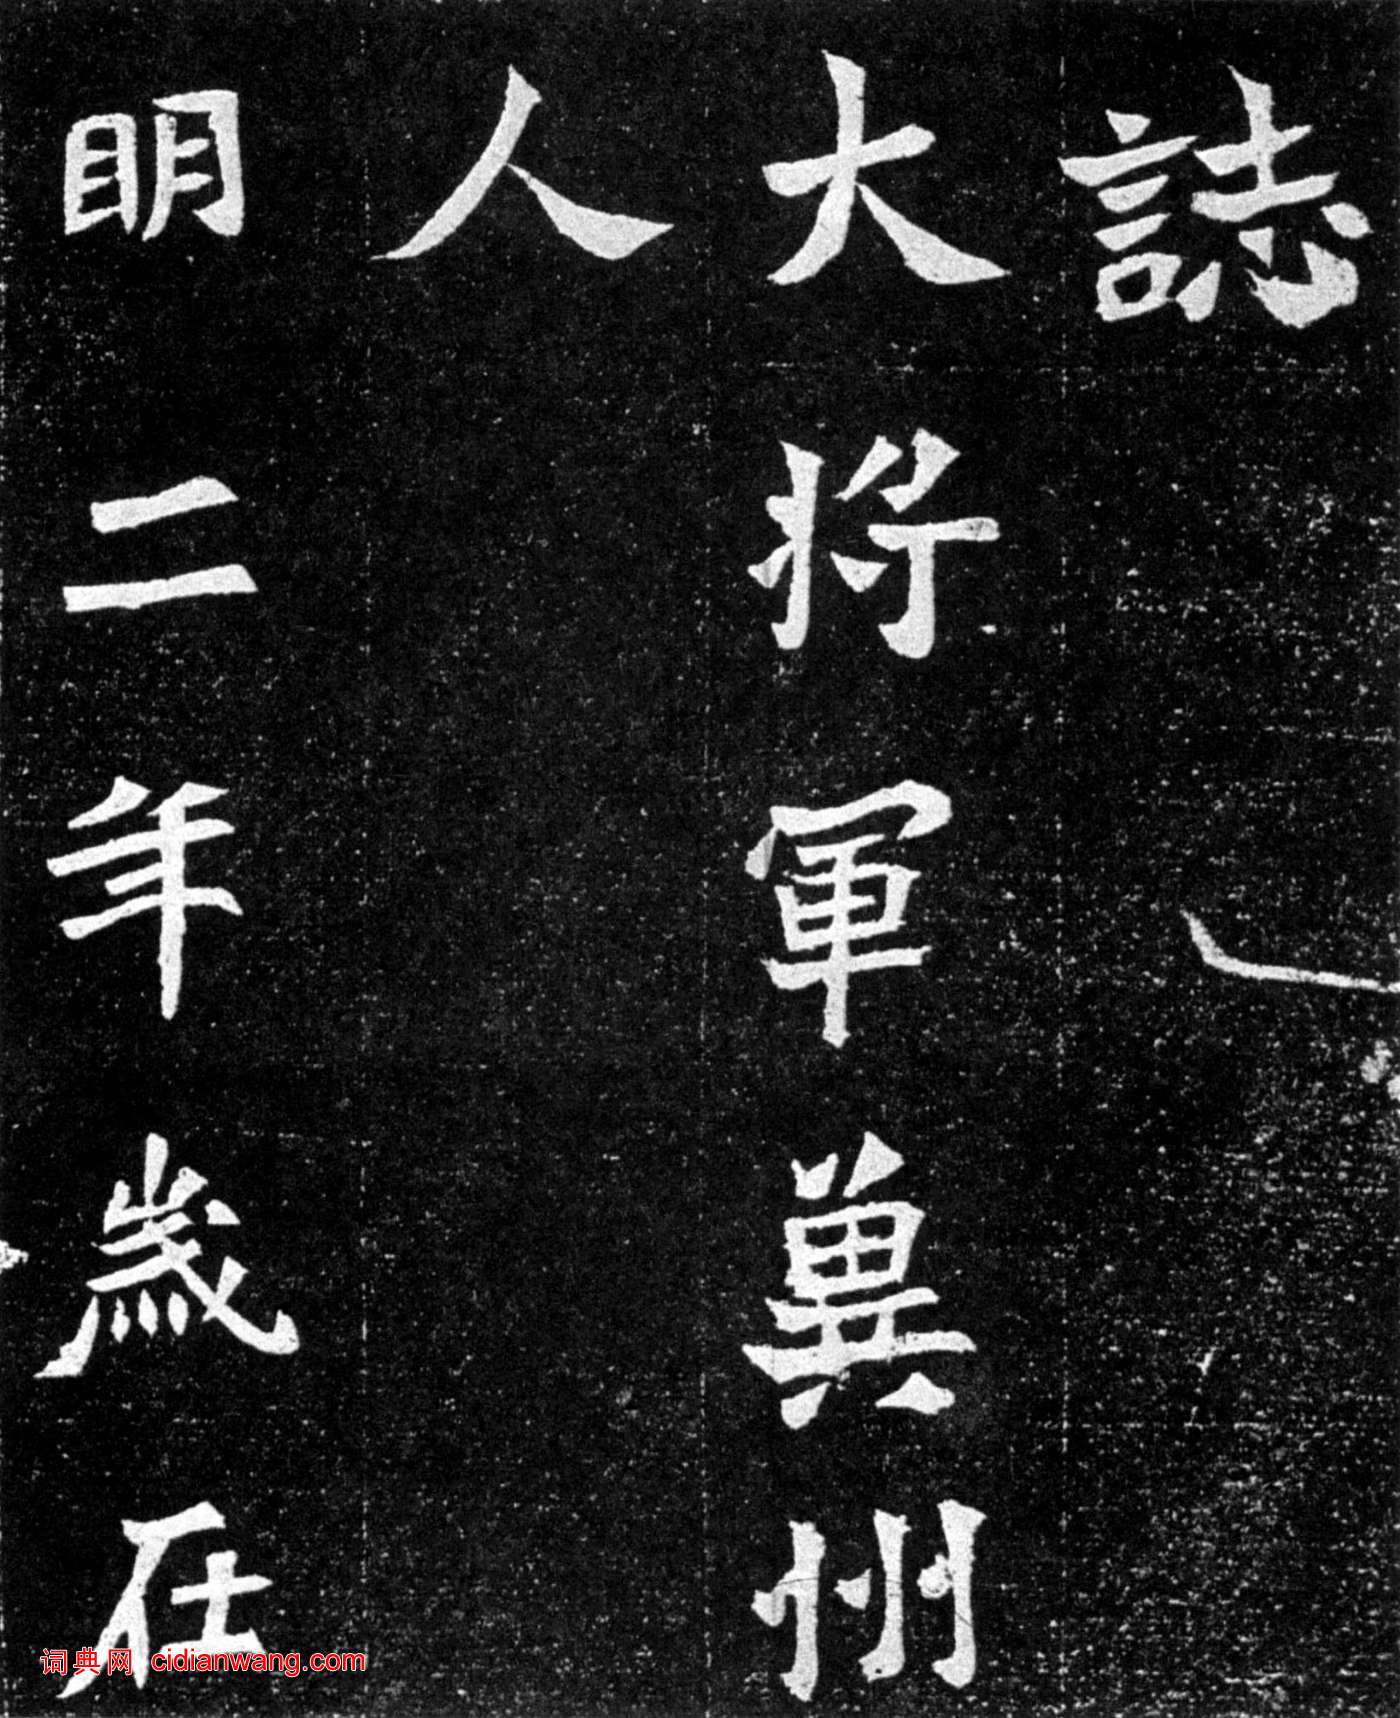 誌
大將軍冀州
人
明二年歲在
词典网 cidianwang.com